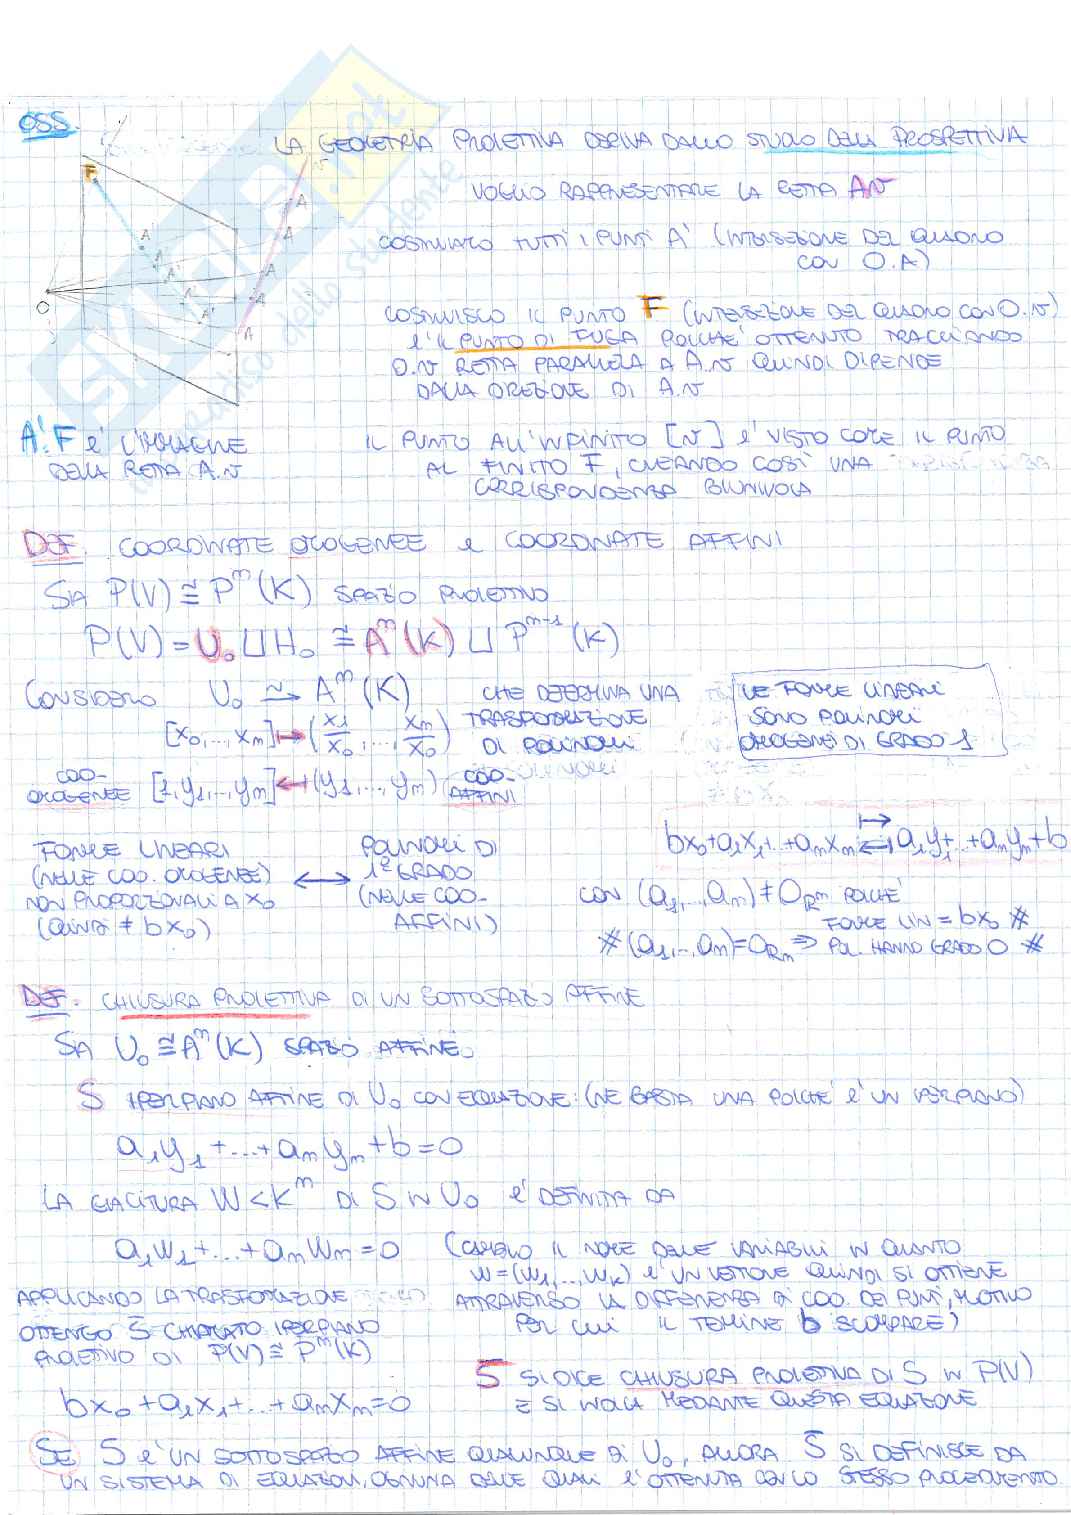 OSS.
LA GEOMETRIA PROIETTIVA DERIVA DALLO STUDIO DELLA PROSPETTIVA
VOGLIO RAPPRESENTARE LA RETTA A,v
COSTRUISCO TUTTI I PUNTI A' (INTERSEZIONE DEL QUADRO
CON O.A)
COSTRUISCO IL PUNTO F (INTERSEZIONE DEL QUADRO CON O.v)
È IL PUNTO DI FUGA POICHÉ OTTENUTO TRACCIANDO
O.v RETTA PARALLELA A A.v QUINDI DIPENDE
DALLA DIREZIONE DI A.v
F
A'
A'
A'
A'
A'
A
A
A
A
A
v
O
A'.F È L'IMMAGINE
DELLA RETTA A.v
IL PUNTO ALL'INFINITO [v] È VISTO COME IL PUNTO
AL FINITO F, CREANDO COSÌ UNA
CORRISPONDENZA BIUNIVOCA
DEF. COORDINATE OMOGENEE E COORDINATE AFFINI
SIA P(V) ≅ Pᵐ(K) SPAZIO PROIETTIVO
P(V) = U₀ ⊔ H₀ ≅ Aᵐ(K) ⊔ Pᵐ⁻¹(K)
CONSIDERO U₀ ⥲ Aᵐ(K) CHE DETERMINA UNA
[x₀,...,xₘ] ↦ (x₁/x₀,...,xₘ/x₀) TRASFORMAZIONE
DI POLINOMI
LE FORME LINEARI
SONO POLINOMI
OMOGENEI DI GRADO 1
COO-
OMOGENEE [1,y₁,...,yₘ] ↤ (y₁,...,yₘ) COO-
AFFINI
FORME LINEARI
(NELLE COO. OMOGENEE)
NON PROPORZIONALI A x₀
(QUINDI ≠ bx₀)
↔
POLINOMI DI
1º GRADO
(NELLE COO-
AFFINI)
bx₀+a₁x₁+...+aₘxₘ ⟷ a₁y₁+...+aₘyₘ+b
CON (a₁,...,aₘ) ≠ 0_Rᵐ POICHÉ
FORME LIN = bx₀ #
# (a₁,...,aₘ) = 0_Rₘ ⇒ POL. HANNO GRADO 0 #
DEF. CHIUSURA PROIETTIVA DI UN SOTTOSPAZIO AFFINE
SIA U₀ ≅ Aᵐ(K) SPAZIO AFFINE
S IPERPIANO AFFINE DI U₀ CON EQUAZIONE: (NE BASTA UNA POICHÉ È UN IPERPIANO)
a₁y₁+...+aₘyₘ+b=0
LA GIACITURA W<Kᵐ DI S IN U₀ È DEFINITA DA
a₁w₁+...+aₘwₘ=0 (CAMBIO IL NOME DELLE VARIABILI IN QUANTO
w=(w₁,...,wₖ) È UN VETTORE QUINDI SI OTTIENE
ATTRAVERSO LA DIFFERENZA DI COO. DEI PUNTI, MOTIVO
PER CUI IL TERMINE b SCOMPARE)
APPLICANDO LA TRASFORMAZIONE
OTTENGO S̄ CHIAMATO IPERPIANO
PROIETTIVO DI P(V) ≅ Pᵐ(K)
bx₀+a₁x₁+...+aₘxₘ=0
S̄ SI DICE CHIUSURA PROIETTIVA DI S IN P(V)
E SI INDICA MEDIANTE QUESTA EQUAZIONE
SE S È UN SOTTOSPAZIO AFFINE QUALUNQUE DI U₀, ALLORA S̄ SI DEFINISCE DA
UN SISTEMA DI EQUAZIONI, OGNUNA DELLE QUALI È OTTENUTA CON LO STESSO PROCEDIMENTO
SKUOLA.net
il paradiso dello studente